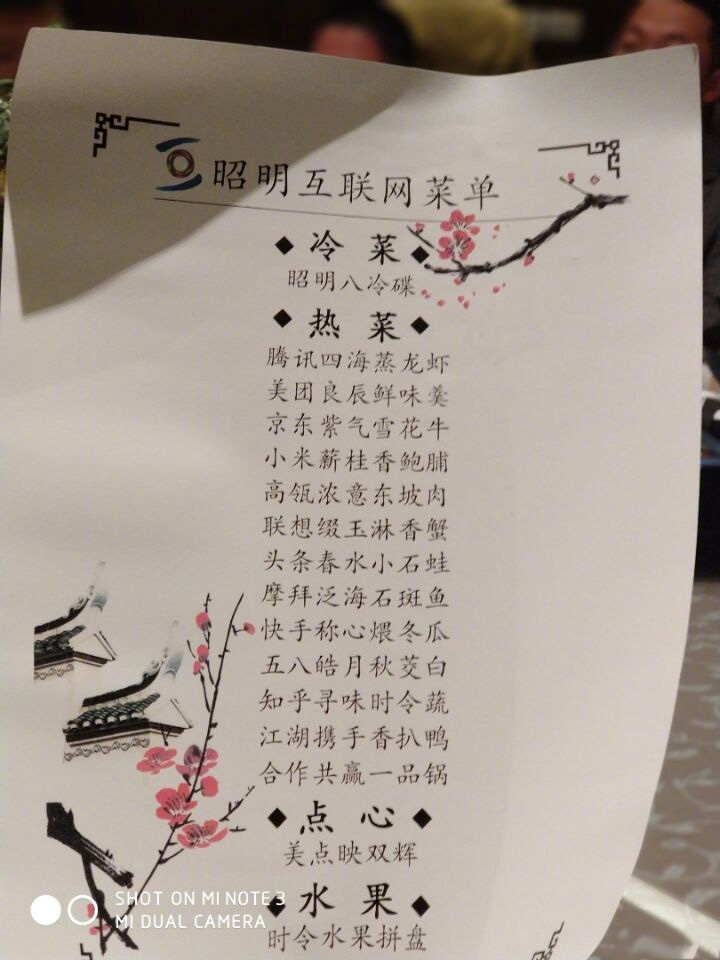 昭明互联网菜单
◆ 冷 菜 ◆
昭明八冷碟
◆ 热 菜 ◆
腾讯四海蒸龙虾
美团良辰鲜味羹
京东紫气雪花牛
小米薪桂香鲍脯
高瓴浓意东坡肉
联想缀玉淋香蟹
头条春水小石蛙
摩拜泛海石斑鱼
快手称心煨冬瓜
五八皓月秋茭白
知乎寻味时令蔬
江湖携手香扒鸭
合作共赢一品锅
◆ 点 心 ◆
美点映双辉
◆ 水 果 ◆
时令水果拼盘
SHOT ON MI NOTE 3
MI DUAL CAMERA